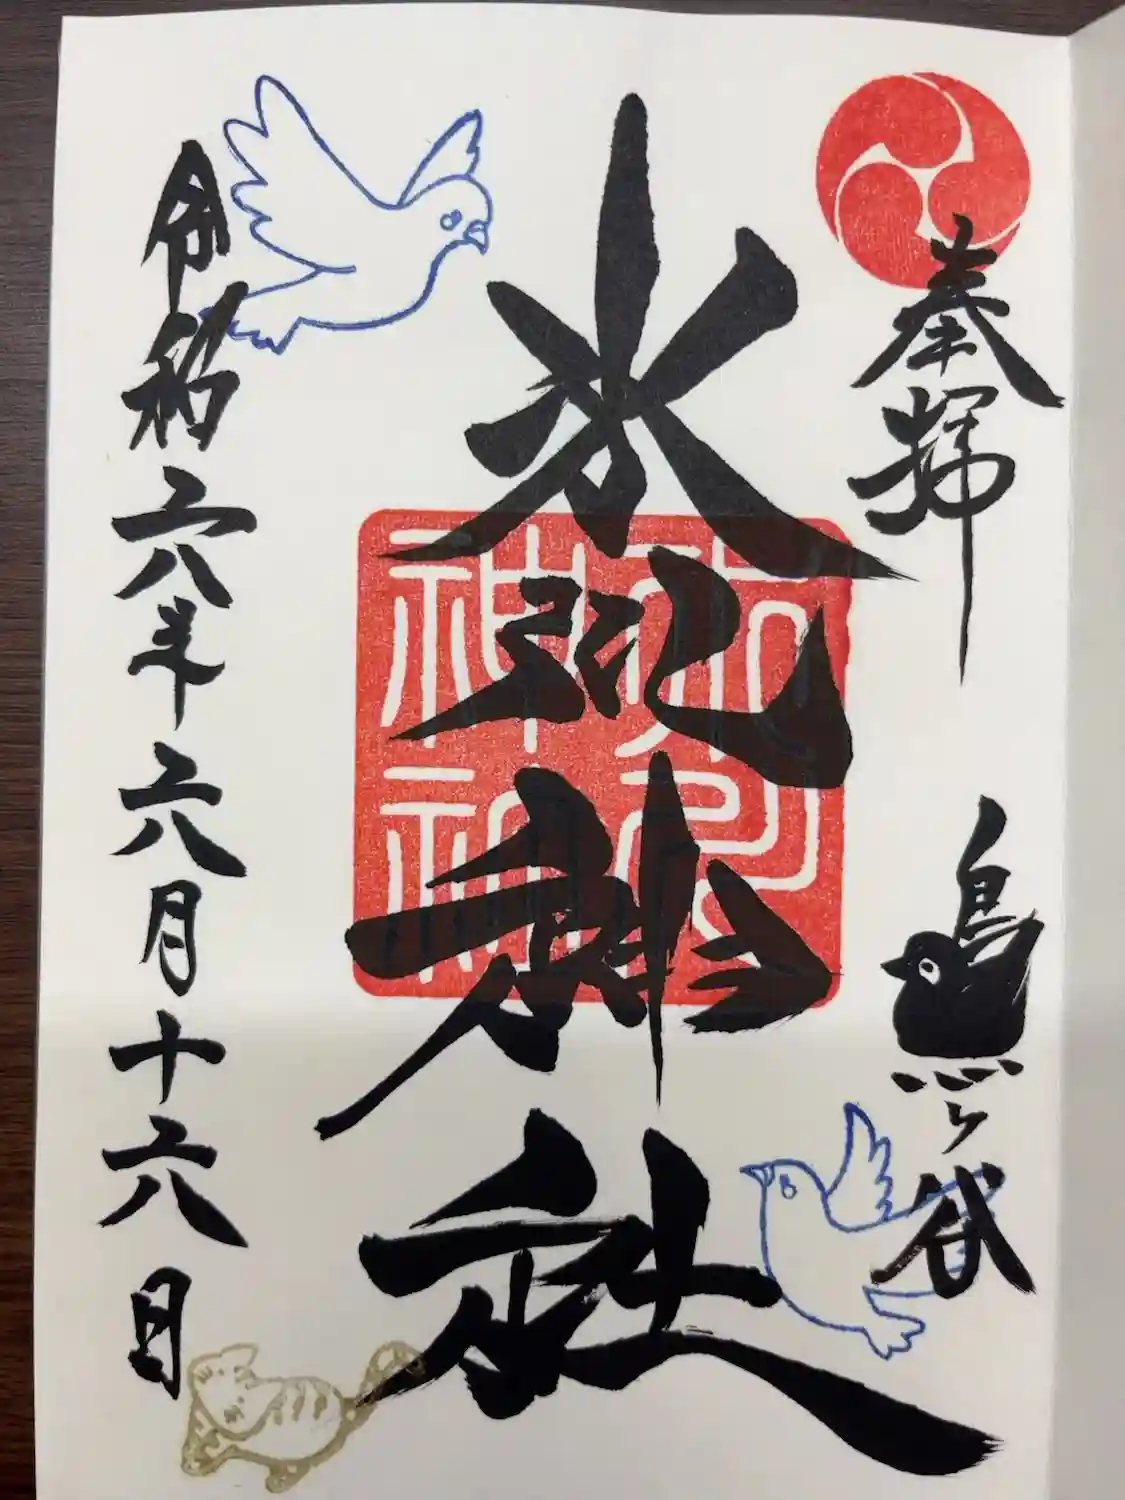 奉拝
鳩ヶ谷
氷川神社
氷川
神社
令和六年六月十六日